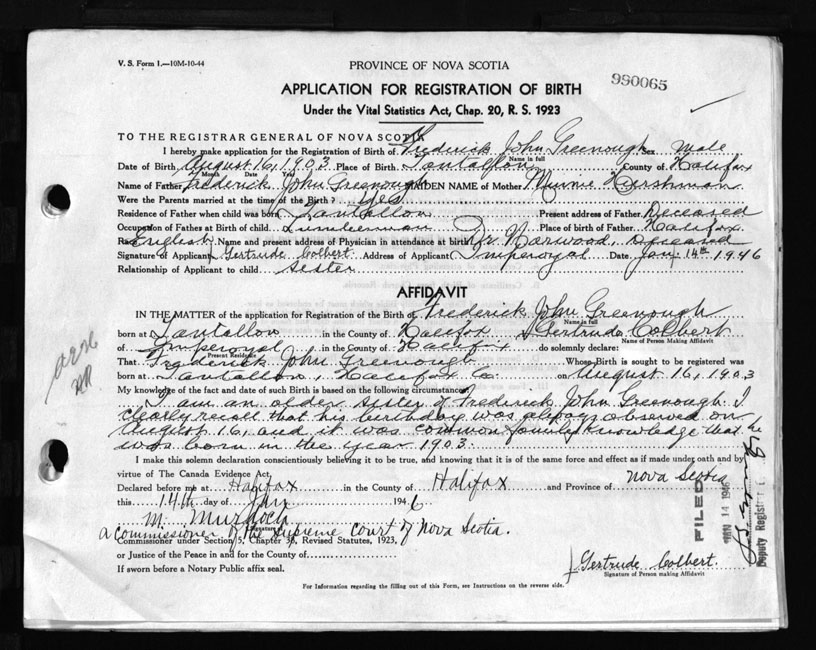 V. S. Form 1.—10M-10-44
PROVINCE OF NOVA SCOTIA
990065
APPLICATION FOR REGISTRATION OF BIRTH
Under the Vital Statistics Act, Chap. 20, R. S. 1923
TO THE REGISTRAR GENERAL OF NOVA SCOTIA
I hereby make application for the Registration of Birth of Frederick John Greenough Sex Male
Name in full
Date of Birth August 16, 1903 Place of Birth Tantallon County of Halifax
Month Day Year
Name of Father Frederick John Greenough MAIDEN NAME of Mother Minnie Hershman
Were the Parents married at the time of the Birth? Yes
Residence of Father when child was born Tantallon Present address of Father Deceased
Occupation of Father at Birth of child Lumberman Place of Birth of Father Halifax
Race English Name and present address of Physician in attendance at birth Dr Norwood, Deceased
Signature of Applicant Gertrude Colbert Address of Applicant Imperoyal Date Jan 14th 1946
Relationship of Applicant to child Sister
AFFIDAVIT
IN THE MATTER of the application for Registration of the Birth of Frederick John Greenough
Name in full
born at Tantallon in the County of Halifax I Gertrude Colbert
Name of Person Making Affidavit
of Imperoyal in the County of Halifax do solemnly declare:
Present Residence
That Frederick John Greenough Whose Birth is sought to be registered was
born at Tantallon, Halifax Co. on August 16, 1903
My knowledge of the fact and date of such Birth is based on the following circumstances
I am an older sister of Frederick John Greenough. I
clearly recall that his birthday was always observed on
August 16, and it was common family knowledge that he
was born in the year 1903.
I make this solemn declaration conscientiously believing it to be true, and knowing that it is of the same force and effect as if made under oath and by
virtue of The Canada Evidence Act.
Declared before me at Halifax in the County of Halifax and Province of Nova Scotia
this 14th day of Jan 1946
M. Murdoch
Signature
a commissioner of the supreme court of Nova Scotia.
Commissioner under Section 5, Chapter 38, Revised Statutes, 1923,
or Justice of the Peace in and for the County of
If sworn before a Notary Public affix seal.
Gertrude Colbert.
Signature of Person making Affidavit
For Information regarding the filling out of this Form, see Instructions on the reverse side.
FILED
JAN 14 1946
Deputy Registrar